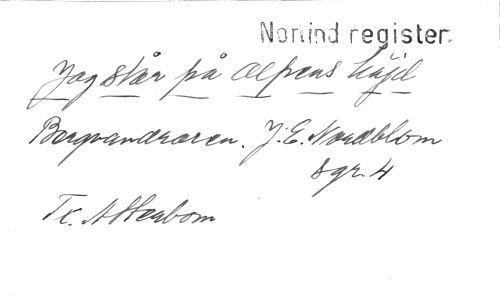 Norlind register.
Jag står på Alpens höjd
Bergvandraren. J. E. Nordblom
sgr. 4
Tx. Atterbom